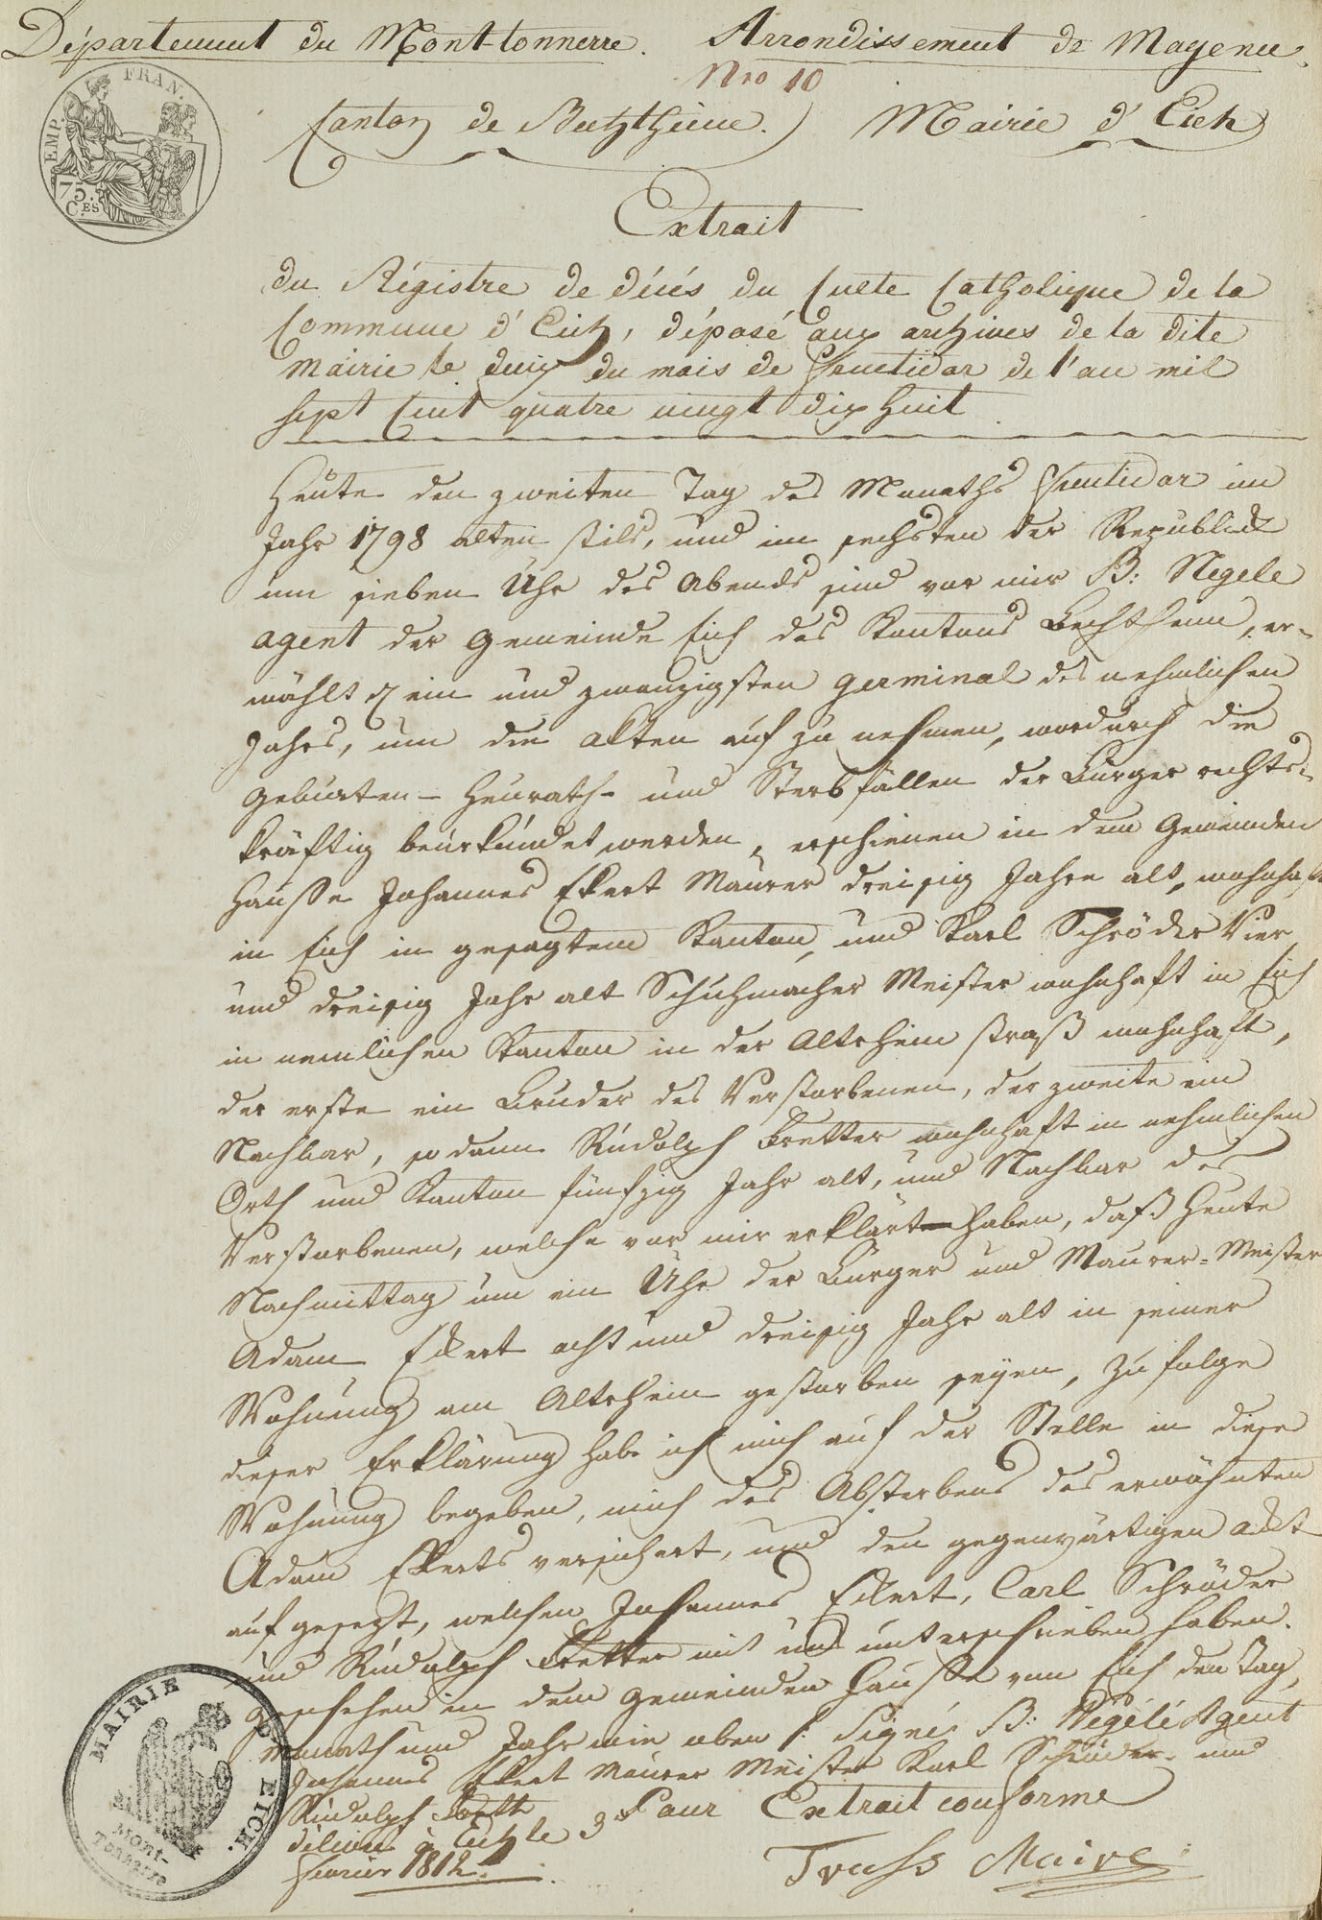 Département du Mont-tonnerre. Arrondissement de Mayence.
Nro 10
EMP. FRAN.
75.
C.ES
Canton de Bechtheim. Mairie d'Eich
Extrait
du Régistre de décés du Culte Catholique de la
Commune d'Eich, déposé aux archives de la dite
mairie le deux du mois de Fructidor de l'an mil
sept cent quatre vingt dix huit
Heute den zweiten Tag des Monaths Fructidor im
Jahr 1798 alten stils, und im sechsten der Republick
um sieben Uhr des Abends sind vor mir B: Negele
agent der Gemeinde Eich des Kantons Bechtheim, er-
wählt ein und zwanzigsten germinal des nehmlichen
Jahrs, um die akten auf zu nehmen, wordurch die
Geburten- Heurath- und Sterbfällen der Bürger rechts-
kräftig beurkundet werden, erschienen in dem Gemeinden
Hausse Johannes Ekert Maurer dreisig Jahre alt, wohnhaft
in Eich in gesagtem Kanton, und Karl Schröder Vier
und dreisig Jahr alt Schuhmacher Meister wohnhaft in Eich
in nemlichen Kanton in der Altrhein straß wohnhaft,
der erste ein Bruder des Verstorbenen, der zweite ein
Nachbar, so dann Rudolph Fretter wohnhaft in nehmlichen
Orth und Kanton fünfzig Jahr alt, und Nachbar des
Verstorbenen, welche vor mir erklärt haben, daß heute
Nachmittag um ein Uhr der Bürger und Maurer-Meister
Adam Eckert acht und dreisig Jahr alt in seiner
Wohnung am Altrhein gestorben seyen, zu folge
dieser Erklärung habe ich mich auf der Stelle in diese
Wohnung begeben, mich des Absterbens des erwähnten
Adam Ekerts versichert, und den gegenwärtigen ackt
aufgesezt, welchen Johannes Eckert, Carl Schröder
und Rudolph Fretter mit uns unterschrieben haben.
geschehen in dem Gemeinden Hausse von Eich den Tag,
Monath und Jahr wie oben /: Signés B: Négélé Agent
Johannes Ekert Maurer Meister Karl Schröder und
Rudolph
délivré à Eich le 3 Pour Extrait conforme
Fevrier 1812. Trass Maire
MAIRIE D' EICH.
MONT-
TONNERRE